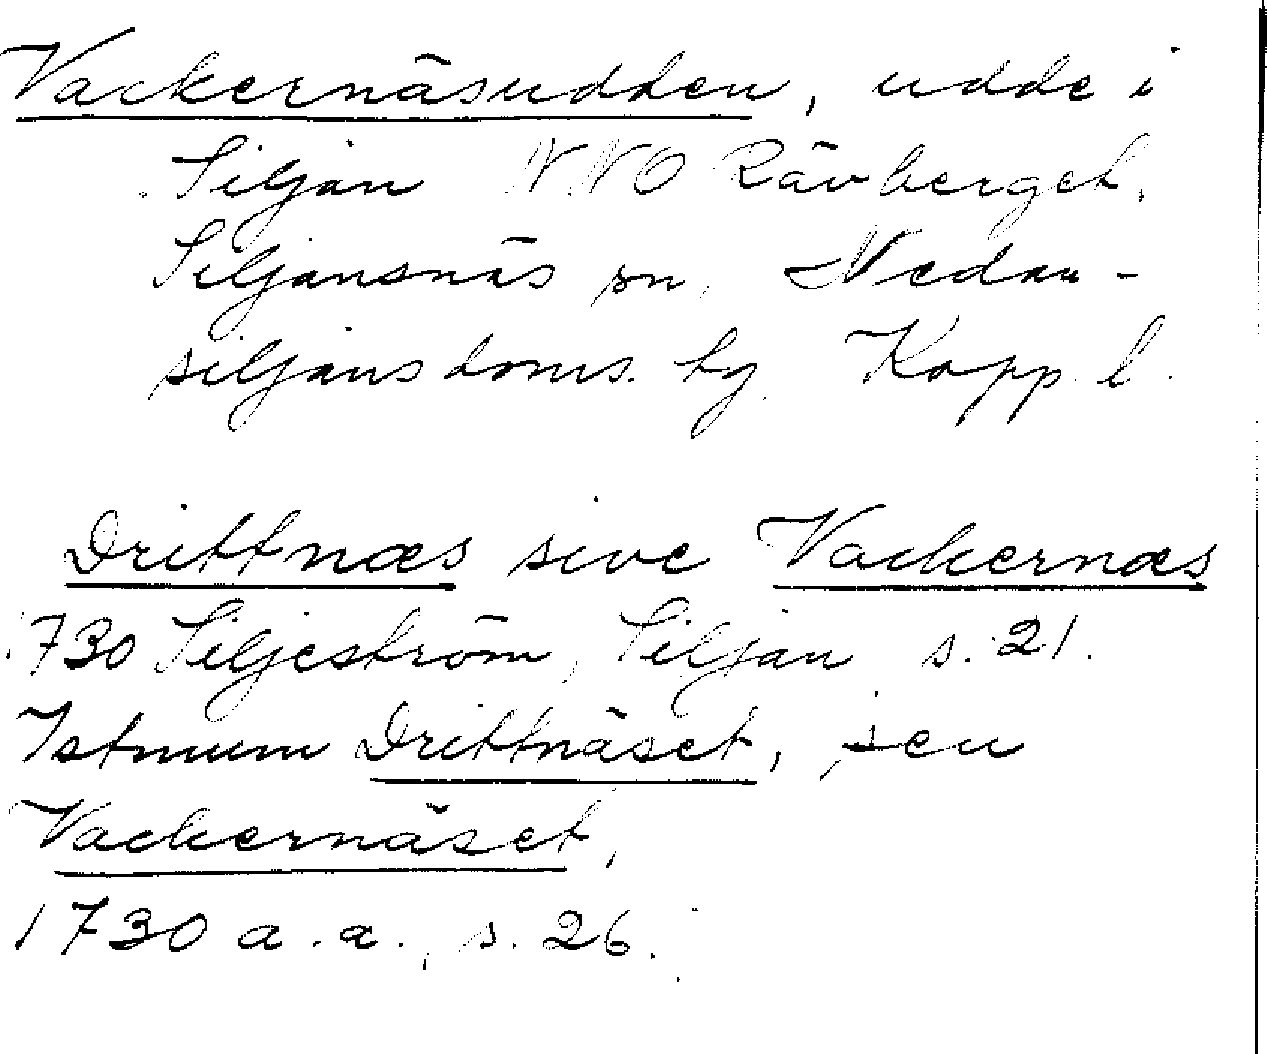 Vackernäsudden, udde i
Siljan NNO Rävberget.
Siljansnäs sn, Nedan-
siljans doms. hg Kopp. l.
Drittnæs sive Vackernæs
1730 Siljeström, Siljan s. 21.
Istmum Drittnäset, seu
Vackernäset,
1730 a.a., s. 26.